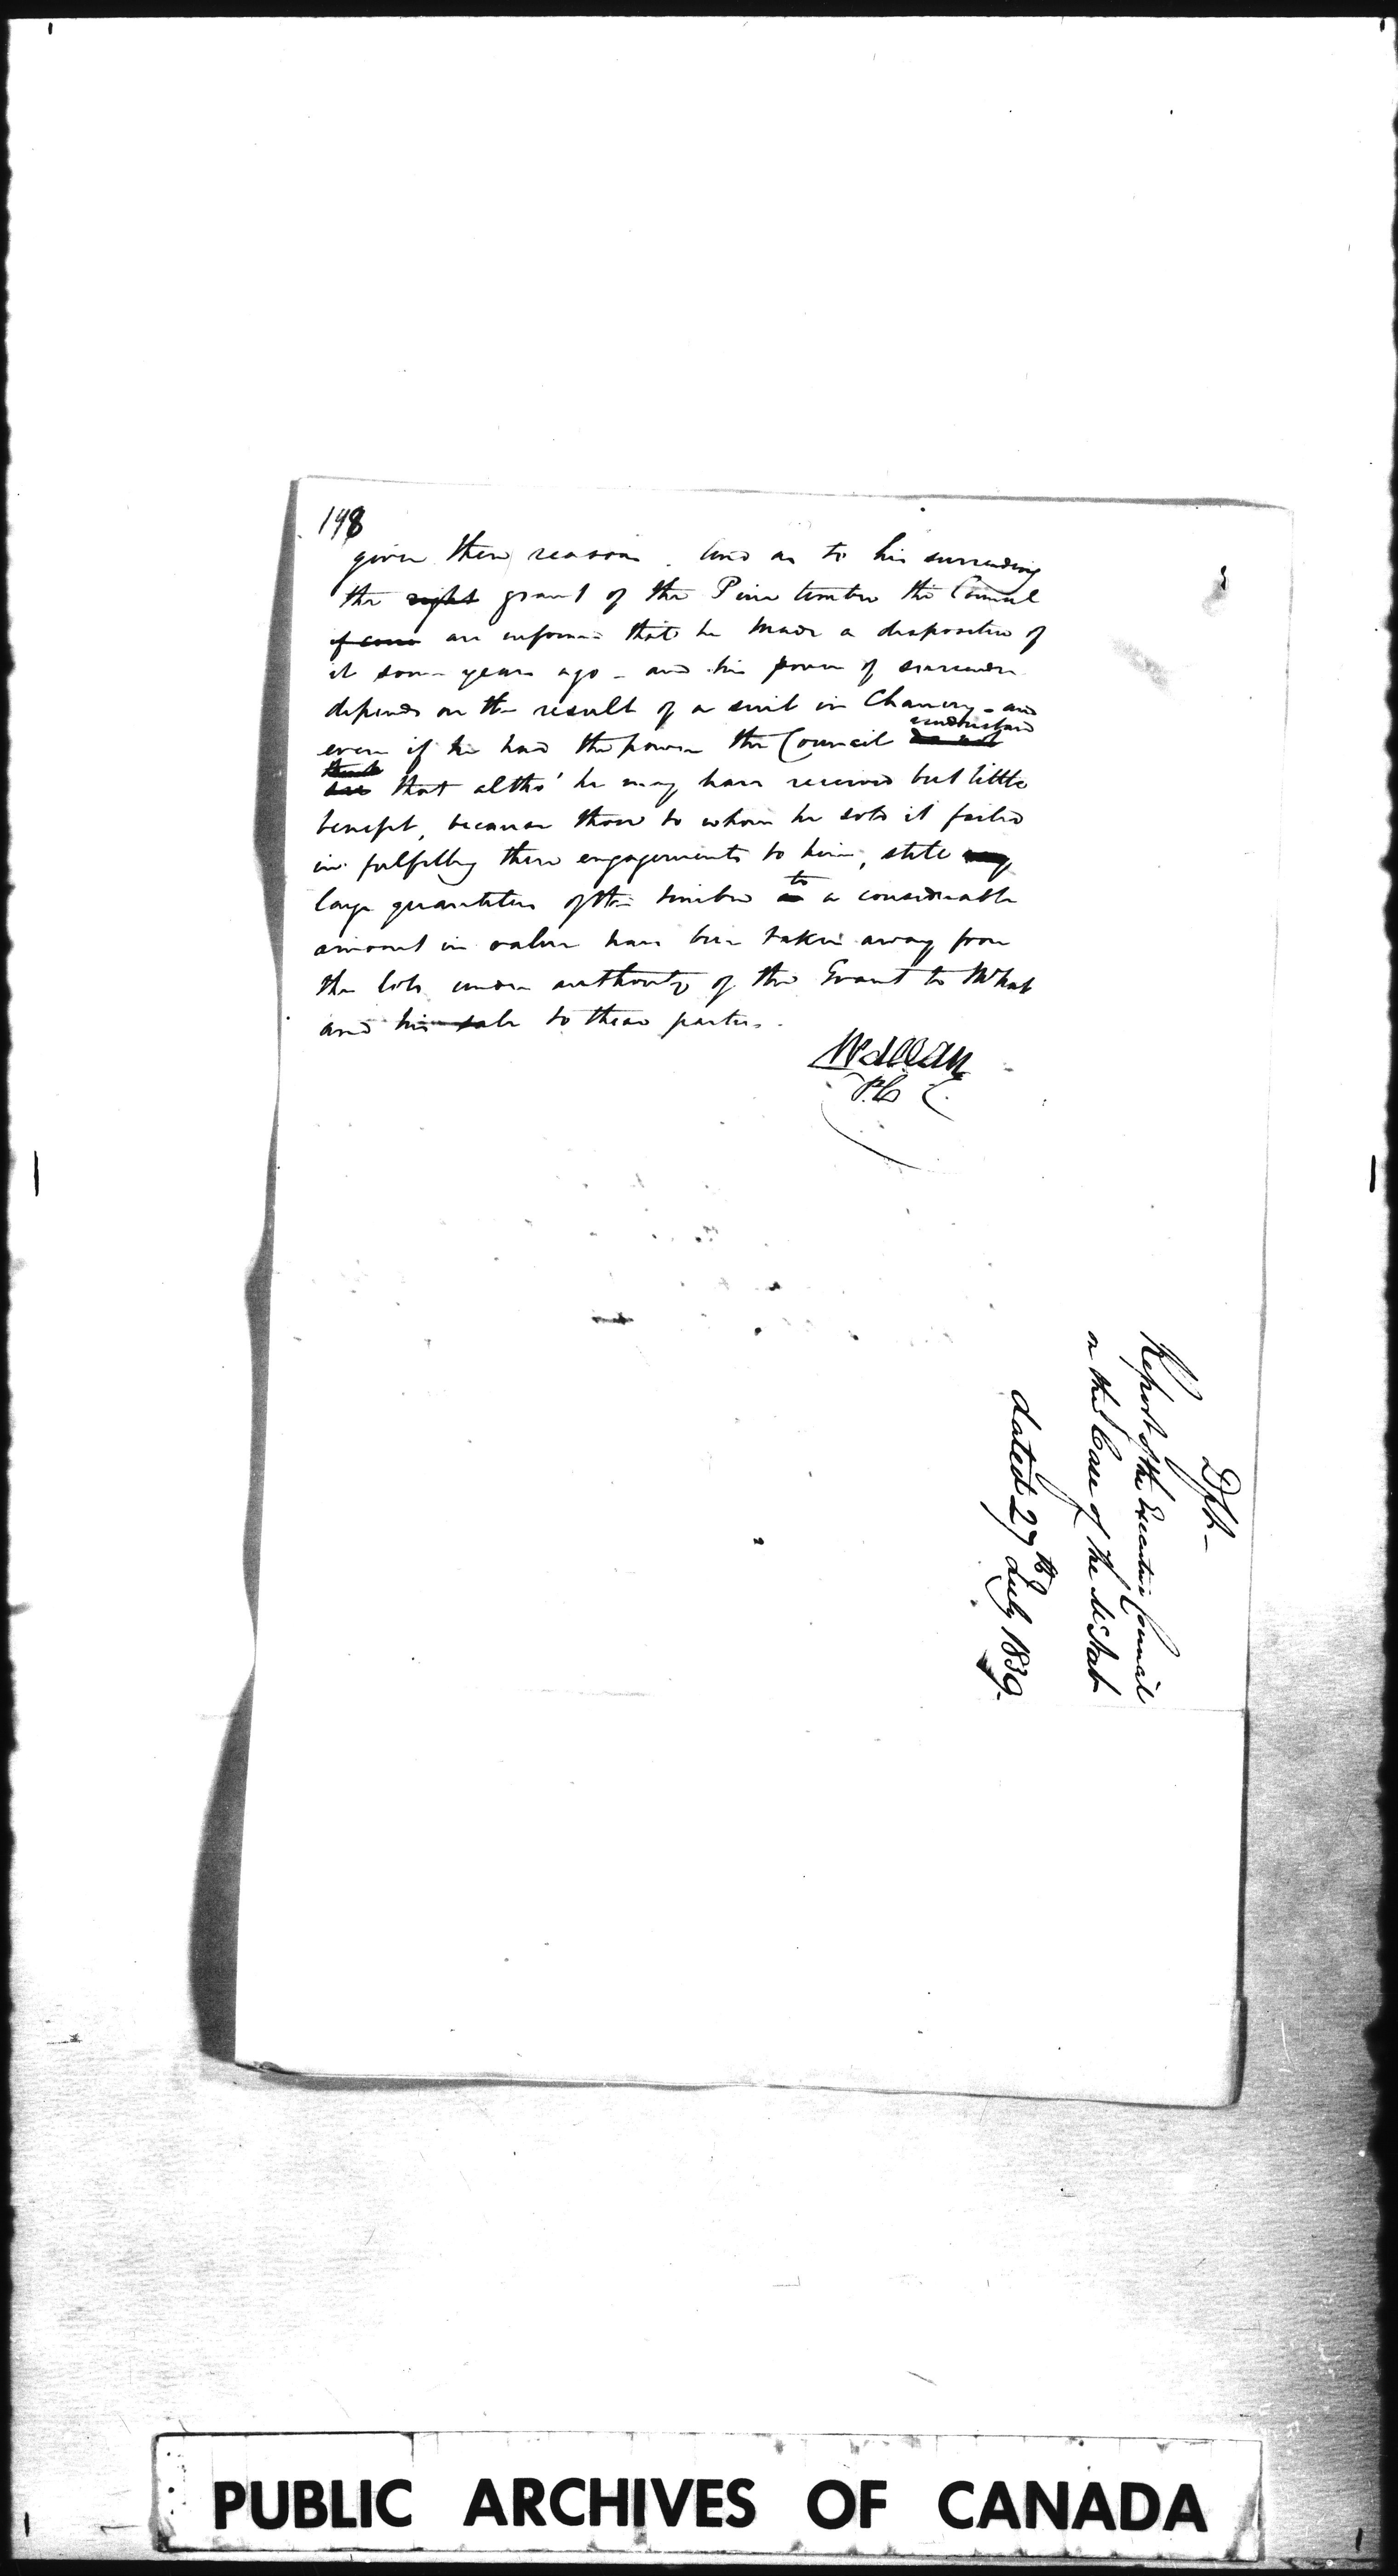 148
given their reasons. And as to his surrending
the right grant of the Pine timber the Council
of course are informed that he made a disposition of
it some years ago - and his power of surrender
depends on the result of a suit in Chancery - and
even if he had the power the Council do not understand
think that altho' he may have received but little
benefit, because those to whom he sold it failed
in fulfilling their engagements to him, still
large quantities of the timber to a considerable
amount in value have been taken away from
the lots under authority of the Grant to McNab
and his sale to these parties.
P. C.
Dft -
Report of the Executive Council
on the Case of the McNab
dated 27th July 1839.
PUBLIC ARCHIVES OF CANADA